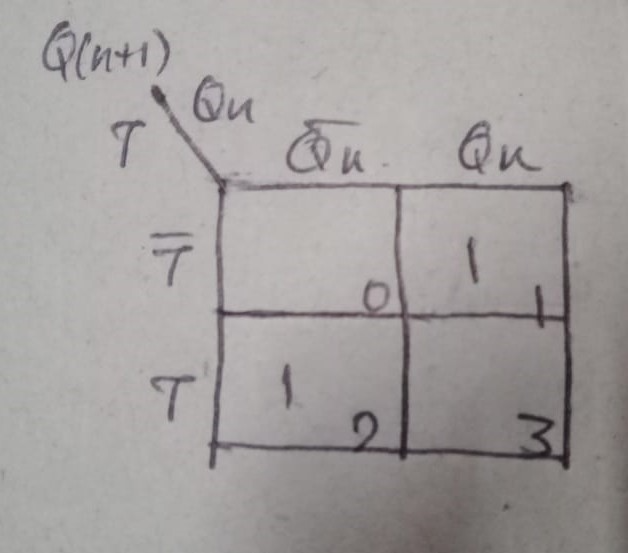 Q(n+1)
T Qn
Q̅n Qn
T̅ 0 1 1
T 1 2 3